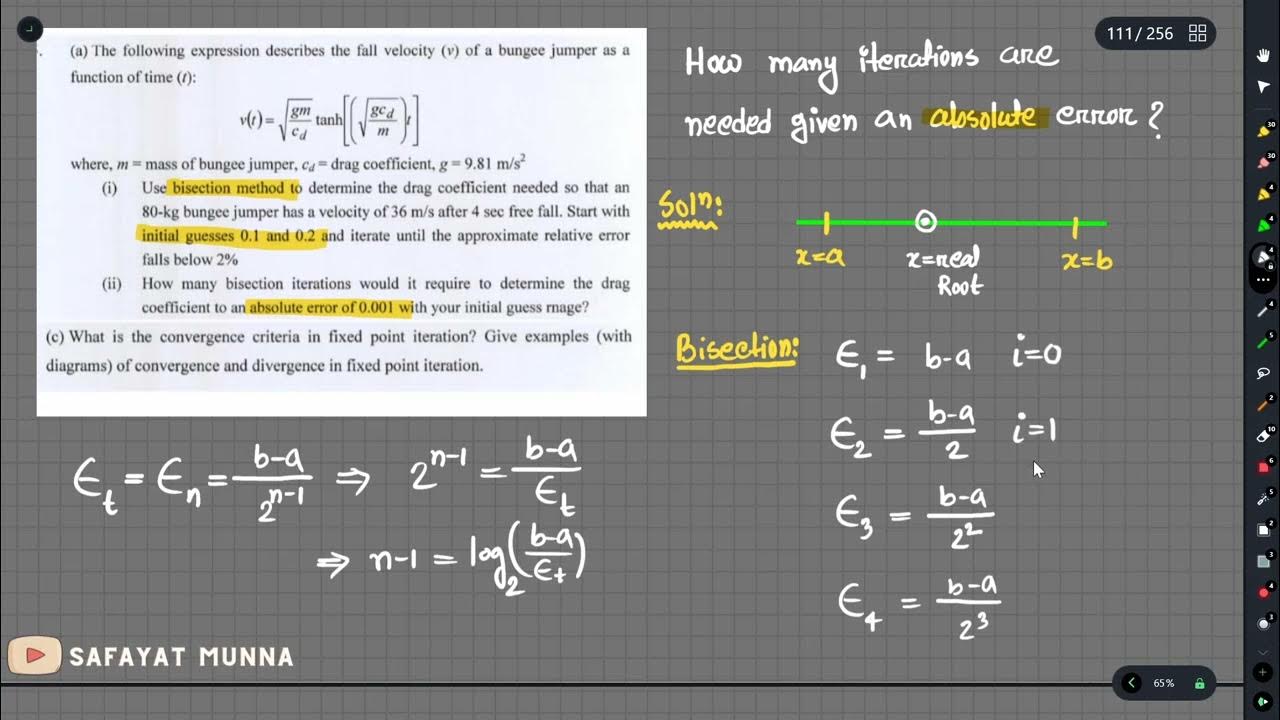 111 / 256
(a) The following expression describes the fall velocity (v) of a bungee jumper as a
function of time (t):
v(t) = √(gm/c_d) tanh[(√(gc_d/m))t]
where, m = mass of bungee jumper, c_d = drag coefficient, g = 9.81 m/s²
(i) Use bisection method to determine the drag coefficient needed so that an
80-kg bungee jumper has a velocity of 36 m/s after 4 sec free fall. Start with
initial guesses 0.1 and 0.2 and iterate until the approximate relative error
falls below 2%
(ii) How many bisection iterations would it require to determine the drag
coefficient to an absolute error of 0.001 with your initial guess rnage?
(c) What is the convergence criteria in fixed point iteration? Give examples (with
diagrams) of convergence and divergence in fixed point iteration.
How many iterations are
needed given an absolute error?
Solⁿ:
x=a x=real x=b
Root
Bisection: ∈₁ = b-a i=0
∈₂ = (b-a)/2 i=1
∈₃ = (b-a)/2²
∈₄ = (b-a)/2³
∈_t = ∈_n = (b-a)/2^(n-1) ⇒ 2^(n-1) = (b-a)/∈_t
⇒ n-1 = log₂((b-a)/∈_t)
SAFAYAT MUNNA
65%